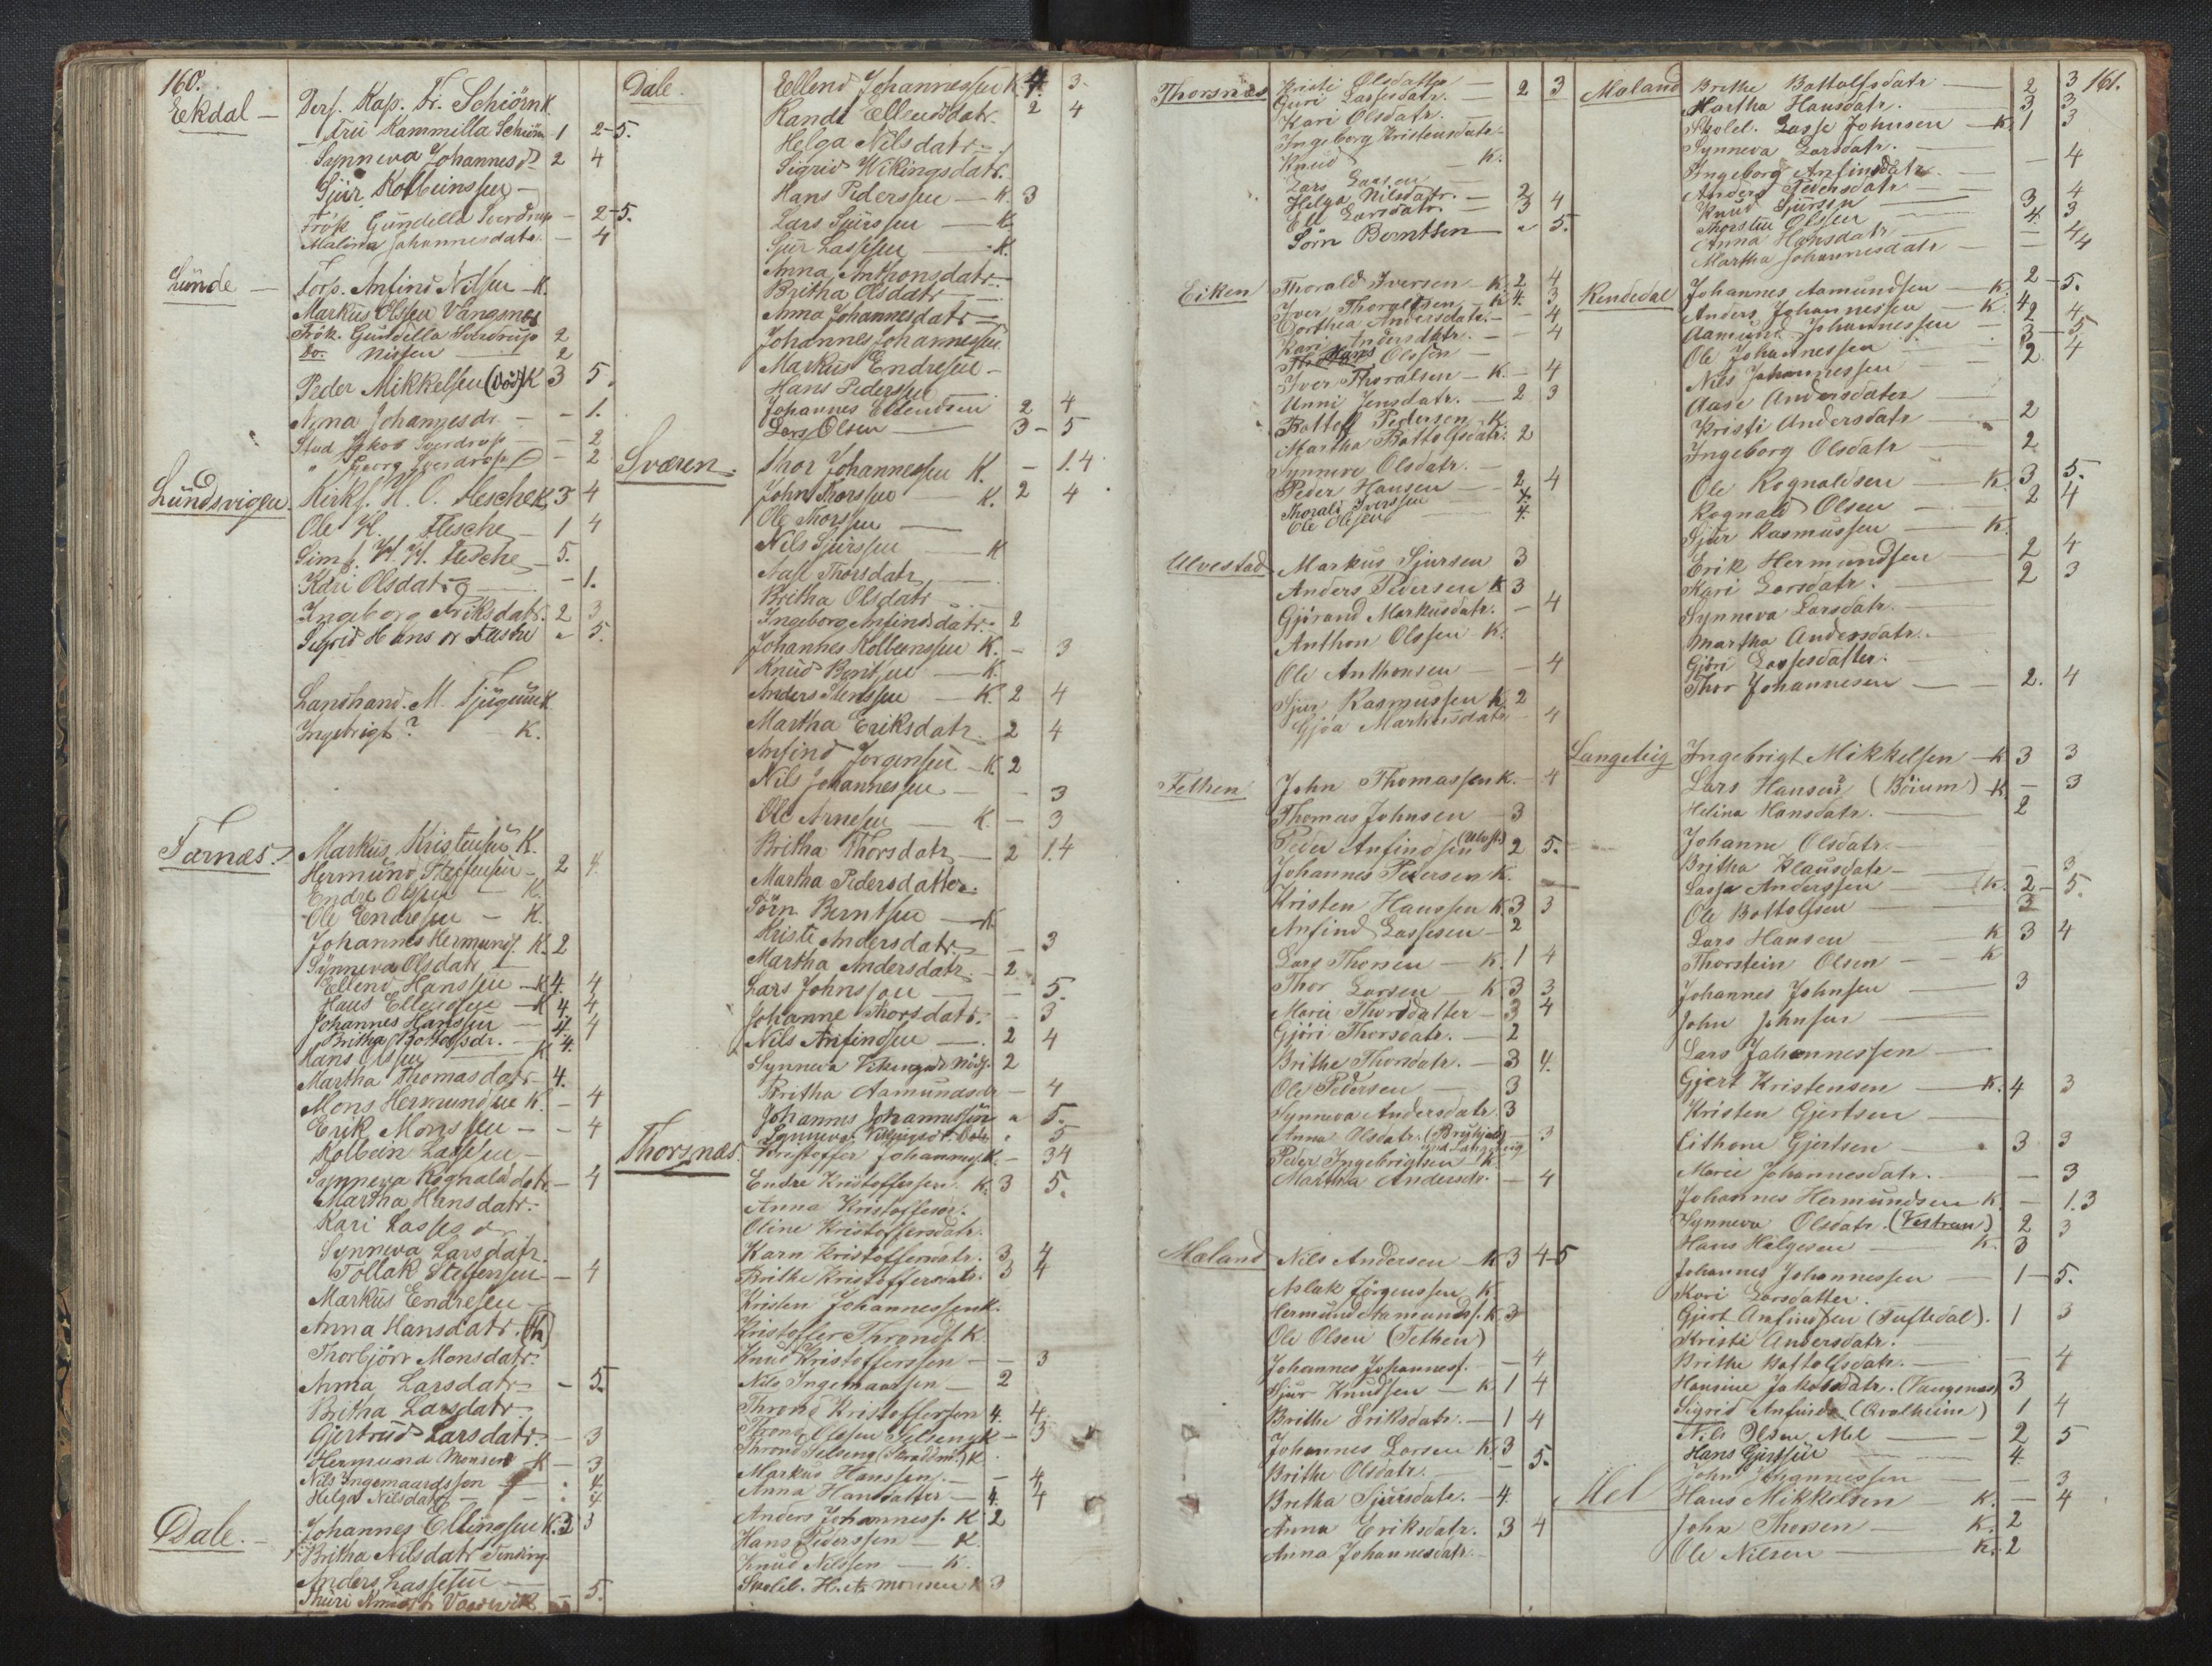 160.
Ekdal — Pers. Kap. Fr. Schiörnk
Fru Kammilla Schiörn - 1 2-5.
Synneva Johannesd. 2 4
Sjur Kolbeinssen —
Frök Gundella Sverdrup — 2-5.
Malina Johannesdatr. — 4
Lunde — Forp. Anfind Nilsen — K.
Markus Olsen Vangsnes
Frök. Gundella Sverdrup 2
Do. Nissen — 2
Peder Mikkelsen (Död) K 3 5.
Anna Johannesdr. — - 1.
Stud Jakob Sverdrup — - 2
" Georg Sverdrup - 2
Lundsvigen. Kirks. H. O. Flesche K. 3 4
Ole H. Flesche — 1 4
Simf. H. H. Flesche - 5.
Kari Olsdatr. — - 1.
Ingeborg Eriksdatr. 2 3
Sigrid Hans dr Flesche " 5.
Landhand. M. Tjugum K
Ingebrigt? — K.
Tærnæs. Markus Kristensen K.
Hermund Steffensen — 2 4.
Endre Olsen — K.
Ole Endresen — K.
Johannes Hermunds. K. 2
Synneva Olsdatr —
Ellend Hanssen — K 4. 4
Hans Ellendsen — K 4. 4
Johannes Hanssen — 4. 4
Britha Bottolfsdr. — 4.
Hans Olsen — K
Martha Thomasdatr - 4.
Mons Hermundsen K. — 4
Erik Monssen — — 4
Kolbein Lassesen —
Synneva Rognaldsdatr — 4
Martha Hansdatr.
Kari Lasses dr.
Synneva Larsdatr.
Tollak Steffensen — 4
Markus Endresen —
Anna Hansdatr. (Th)
Thorbjör Monsdatr.
Anna Larsdatr — - 5.
Britha Larsdatr.
Gjertrud Larsdatr. — 3
Hermund Monsen K — 3
Nils Ingemaardssen — " 4.
Helga Nilsdatr — " 4.
Dale. — Johannes Ellingsen K. 3 3
Britha Nilsdatr Tending
Anders Lassesen —
Thuri Vardevik — 5.
Dale. Ellend Johannessen K. 4. 3.
Randi Ellendsdatr. 2 4
Helga Nilsdatr —
Sigrid Wikingsdatr.
Hans Pedersen — K. 3
Lars Sjurssen — K.
Sjur Lassesen — K.
Anna Anthonsdatr —
Britha Olsdatr —
Anna Johannesdatr —
Johannes Johannessen
Markus Endresen —
Hans Pedersen
Johannes Ellendsen 2 4
Lars Olsen — 3 - 5
Sværen. Thor Johannessen K. — 1.4
John Thorssen K. 2 4
Ole Thorssen —
Nils Sjurssen — K
Aase Thorsdatr —
Britha Olsdatr
Ingeborg Anfindsdatr. 2
Johannes Kolbeinssen K. — 3
Knud Bentsen — K.
Anders Stenssen — K. 2 4
Martha Eriksdatr. 2 4
Anfind Jorgensen — K. 2
Nils Johannessen — — 3
Ole Arnesen — K. — 3
Britha Thorsdatr — 2 1.4
Martha Pedersdatter.
Sörn Berntsen — K
Kristi Andersdatr — 3
Martha Andersdatr. — 2
Lars Johnssen — — 5.
Johanne Thorsdatr. — 3
Nils Anfindsen — 2 4
Synneva Vikingsd. 2
Britha Aamundsdr — 4
Johannes Johannessen " 5.
Synneva Vikingsdr. Dale " 5
Thorsnæs. Kristoffer Johanness. K. — 34
Endre Kristoffersen K. 3 5.
Anna Kristoffersdr.
Oline Kristoffersdatr.
Karn Kristoffersdatr. 3 4
Brithe Kristoffersdatr. 3 4
Kristen Johannessen K.
Kristoffer Thronds. K.
Knud Kristofferssen — — 3
Nils Ingemaarssen — 2
Thrond Kristoffersen 4. 4.
Thrond Olssen Selseng K — 3
Thrond Selseng K
Markus Hanssen. — 4
Anna Hansdatter — 4. 4
Anders Johanness. K 2
Hans Pederssen — K.
Knud Nilssen — K.
Skolel. H. Monsen K 3
Thorsnæs Kristi Olsdatter — 2 3
Guri Lassesdatr. —
Kari Olsdatr. —
Ingeborg Kristensdatr.
Knud — K.
Lars Larsen —
Helga Nilsdatr. — 2 4
Eli Larsdatr. — 3
Sörn Berntsen — " 5.
Eiken Thorald Iversen — K. 2 4
Iver Thoraldsen — K. 4. 3
Dorthea Andersdatr. — 4
Kari Andersdatr. — 4
Hans Olssen —
Iver Thoralsen — K. — 4
Unni Jensdatr. — 2 3
Bottolf Pedersen K.
Martha Bottolfsdatr. 2
Synneve Olsdatr. —
Peder Hansen — 2 4
Thorald Iverssen 4.
Ole Olsen 4.
Ulvestad Markus Sjursen 3
Anders Pedersen K 3
Gjörand Markusdatr. — 4
Anthon Olssen K.
Ole Anthonsen — — 4
Sjur Rasmussen K. 2
Gjöa Markusdatr — 4
Fethen John Thomassen K. — 4
Thomas Johnsen — 3
Peder Anfindsen (Ulvest.) 2 5.
Johannes Pedersen K.
Kristen Hanssen K. 3 3
Anfind Lassesen — 2
Lars Thorsen — K. 1 4
Thor Larsen — K 3 3
Marie Thorsdatter — 3 4
Gjöri Thorsdatr. — 2
Brithe Thorsdatr. — 3 4.
Ole Pedersen — 3
Synneva Andersdatr. 3
Anna Olsdatr. — 3
Peder Ingebrigtsen K.
Martha Andersdr. — 4
Mæland Nils Andersen — K 3 4-5
Aslak Jörgenssen K.
Hermund Aamunds. K 3
Ole Olsen (Fethen)
Johannes Johanness. — 4
Sjur Knudsen — K. 1 4
Brithe Eriksdatr. — 1 4
Johannes Larsen K. 3
Brithe Olsdatr. — 5.
Britha Sjursdatr. — 4.
Anna Eriksdatr. 3 4
Anna Johannesdatr. —
161.
Mæland Brithe Bottolfsdatr — 2 3
Martha Hansdatr. 3 3
Skolel. Lasse Johnsen — K 1 3
Synneva Larsdatr. —
Ingeborg Anfindsdatr. — 4
Anders Pedersdatr —
Knud Sjurssen — 3 4
Thorsten Olssen — 4. 3
Anna Hansdatr — 4
Martha Johannesdatr — 4
Rendedal Johannes Aamundsen — K. 2-5.
Anders Johannessen — K. 4
Aamund Johannessen — 2 4
Ole Johannessen — 3-5
Nils Johannessen — 2. 4
Aase Andersdatter —
Kristi Andersdatr — 2
Ingeborg Olsdatr — 2
Ole Rognaldsen — K. 3 5.
Rognald Olsen — 2 4
Sjur Rasmussen — K.
Erik Hermundsen — 2 4
Kari Larsdatr. — 2 3
Synneva Larsdatr. —
Martha Andersdatr. —
Gjöri Lassesdatter. —
Thor Johannesen — 2. 4
Langeteig Ingebrigt Mikkelsen — K 3 3
Lars Hansen (Böium) K — 3
Helina Hansdatr. — 2
Johanne Olsdatr. —
Britha Klausdatr — 3
Lasse Anderssen — K. 2-5.
Ole Bottolfsen — 3
Lars Hansen — K 3 4
Thorstein Olsen — K
Johannes Johnsen — 3
John Johnsen —
Lars Johannessen —
Gjert Kristensen — K. 4 3
Kristen Gjertsen —
Githone Gjertsen — 3 3
Marie Johannesdatr. — 3
Johannes Hermundsen K. — 1.3
Synneva Olsdatr. (Vestreim) 2 3
Hans Helgesen — K. 3
Johannes Johannessen — 1-5.
Kari Larsdatter.
Gjert Amfindsen (Tuftedal). 1 3
Kristi Andersdatr.
Brithe Bottolfsdatr. — 4
Hansine Jakobsdatr. (Vangsnes) 3
Sigrid Anfinds. (Qvalheim) 1 4
Nils Olsen Mel — 2 5
Hans Gjertsen — 4.
John Johannessen — 3
Mel Hans Mikkelsen — K. — 4
John Thorsen — K. 2
Ole Nilsen — K. 2